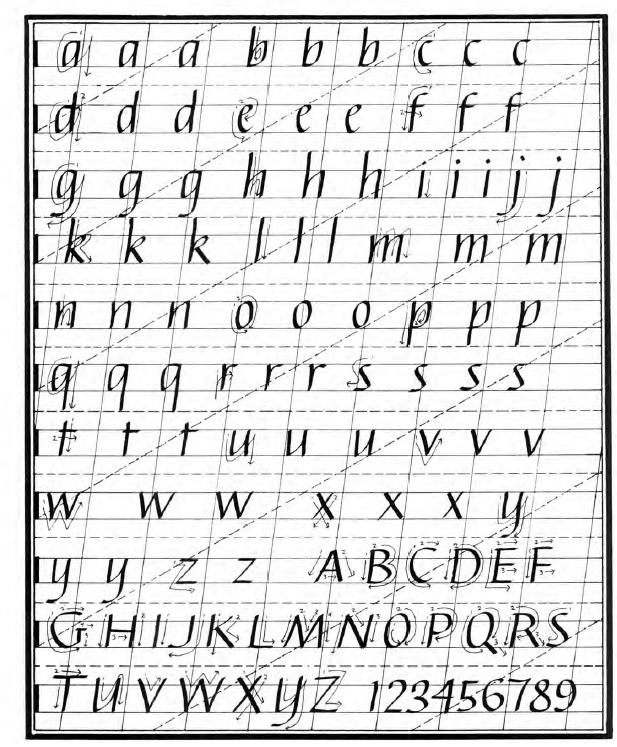 a a a b b b c c c
d d d e e e f f f
g g g h h h i i i j j
k k k l l l m m m
n n n o o o p p p
q q q r r r s s s s
t t t u u u v v v
w w w x x x y
y y z z A B C D E F
G H I J K L M N O P Q R S
T U V W X Y Z 123456789